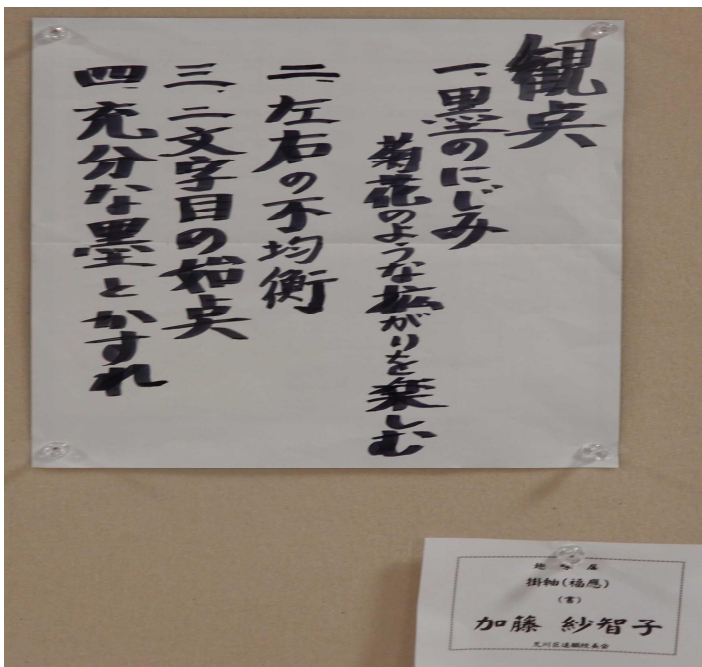 観点
一、墨のにじみ
菊花のような拡がりを楽しむ
二、左右の不均衡
三、二文字目の始点
四、充分な墨とかすれ
掛軸(福應)
(書)
加藤 紗智子